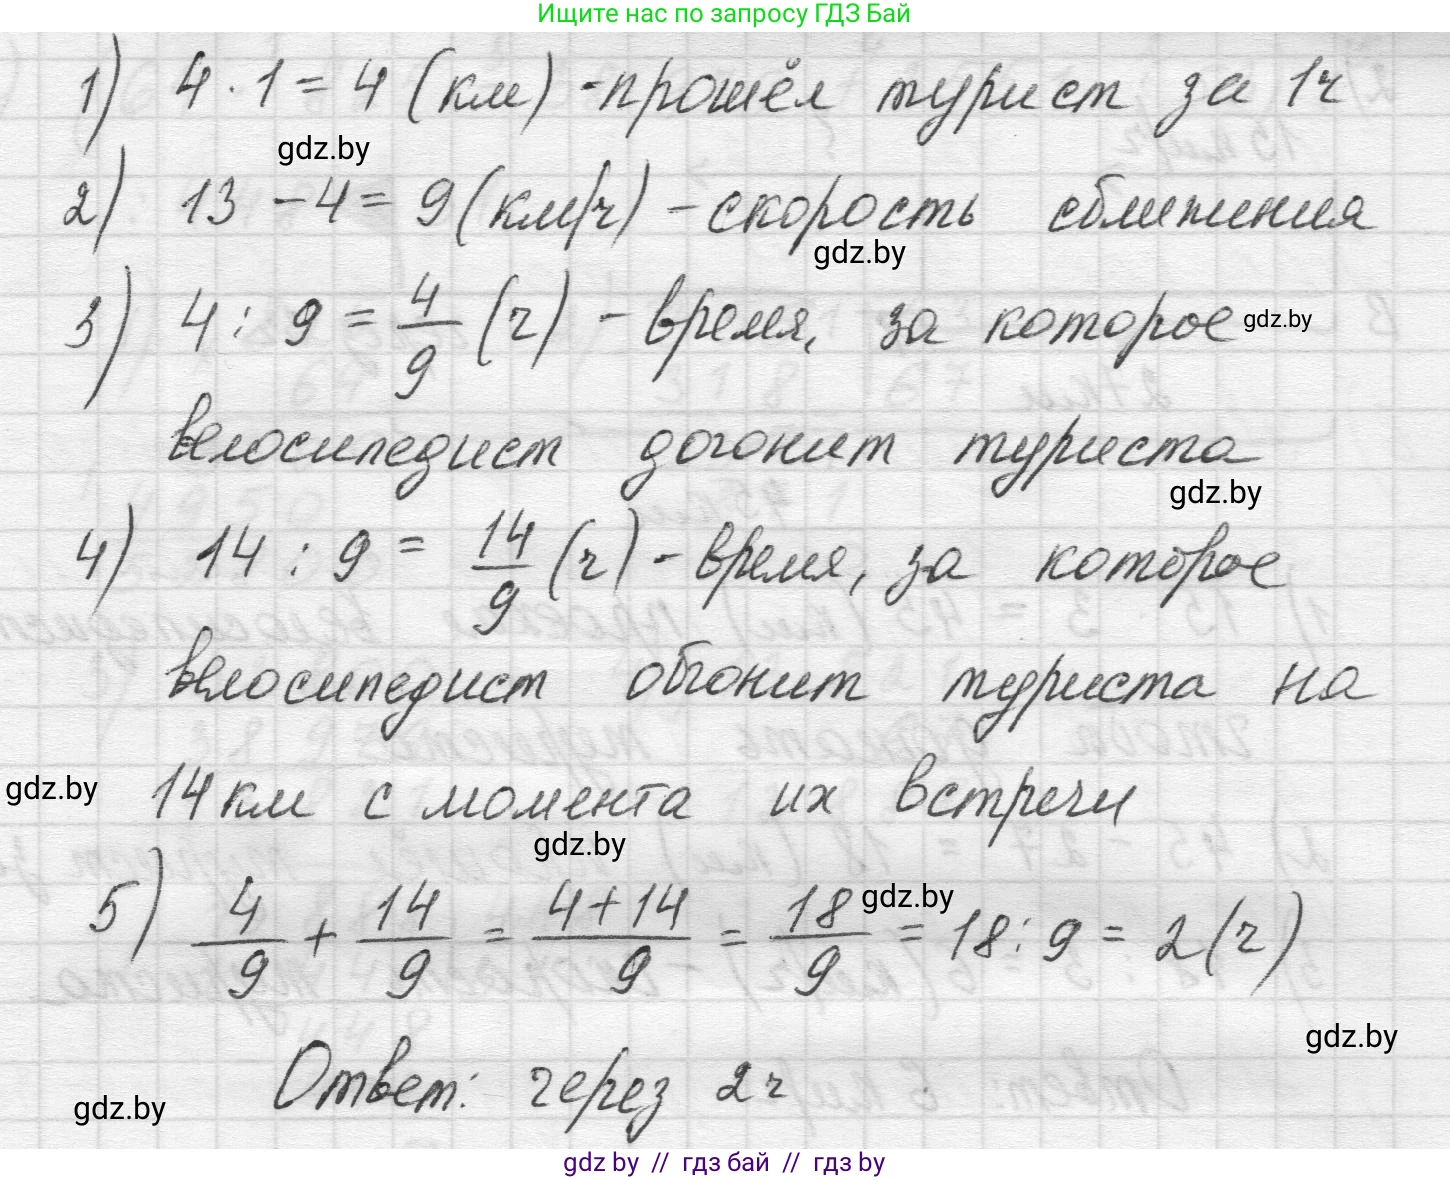 Ищите нас по запросу ГДЗ Бай
1) 4 · 1 = 4 (км) - прошёл турист за 1ч
gdz.by
2) 13 - 4 = 9 (км/ч) - скорость сближения
gdz.by
3) 4 : 9 = 4/9 (ч) - время, за которое gdz.by
велосипедист догонит туриста
gdz.by
4) 14 : 9 = 14/9 (ч) - время, за которое
велосипедист обгонит туриста на
gdz.by 14 км с момента их встречи
gdz.by
5) 4/9 + 14/9 = (4+14)/9 = 18/9 = 18 : 9 = 2 (ч)
gdz.by
gdz.by
Ответ: через 2 ч
gdz.by
gdz by // гдз бай // гдз by